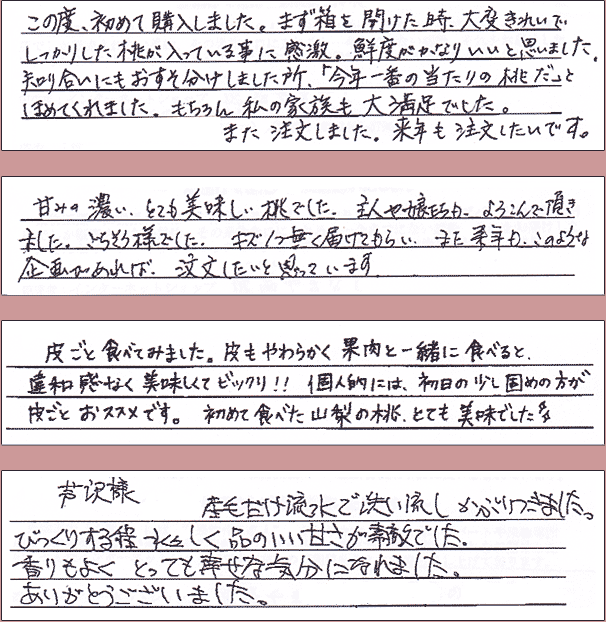 この度、初めて購入しました。まず箱を開けた時、大変きれいで
しっかりした桃が入っている事に感激。鮮度がかなりいいと思いました。
知り合いにもおすそ分けしました所、「今年一番の当たりの桃だ」と
ほめてくれました。もちろん私の家族も大満足でした。
また注文しました。来年も注文したいです。
甘みの濃い、とても美味しい桃でした。主人や娘たちが、よろこんで頂き
ました。ごちそう様でした。キズ1つ無く届けてもらい、また来年も、このような
企画があれば、注文したいと思っています
皮ごと食べてみました。皮もやわらかく果肉と一緒に食べると、
違和感なく美味しくてビックリ!! 個人的には、初日の少し固めの方が
皮ごとおススメです。 初めて食べた山梨の桃、とても美味でした
芦沢様 産毛だけ流水で洗い流しかぶりつきました。
びっくりする程 しく品のいい甘さが素敵でした。
香りもよく とっても幸せな気分になれました。
ありがとうございました。